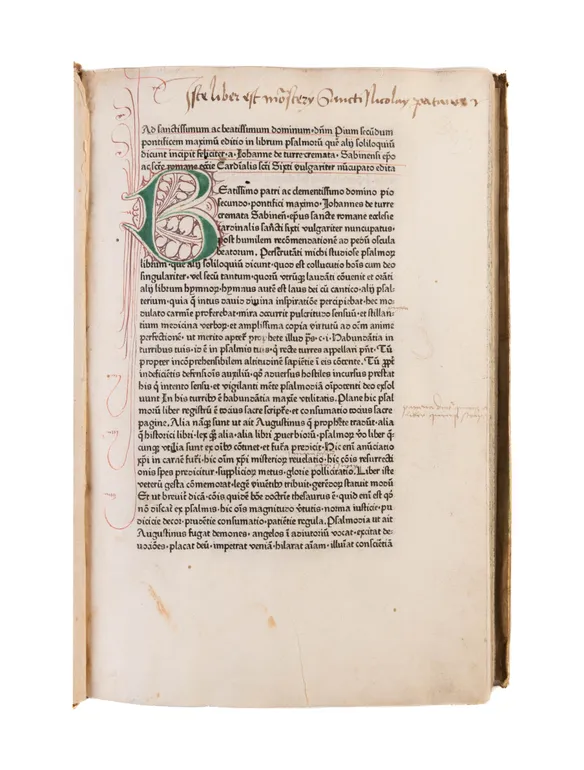 Iste liber est mo͂stery Sancti Nicolay
Ad sanctissimum ac beatissimum dominum · dn̄m Pium secūdum
pontificem maximū editio in librum psalmoꝝ quē alij soliloquiū
dicunt incipit feliciter · a · Iohanne de turre cremata · Sabinensi ep̄o
ac scē romane ecclīe Cardinalis sc̄i Sixti vulgariter nūcupato edita
BEatissimo patri ac clementissimo domino pio
secundo · pontifici maximo · Iohannes de turre
cremata Sabineñ · ep̄us sancte romane ecclesie
cardinalis sancti sixti vulgariter nuncupatus ·
post humilem recōmendationē ad pedū oscula
beatorum. Perscrutāti michi studiose psalmoꝝ
librum · quē alij soliloquiū dicunt · quod est collucutio hoīs cum deo
singulariter · vel secū tantum · quoꝝ utrūqꝫ laudāti cōuenit et orāti
alij librum hymnoꝝ · hymnus autē est laus dei cū cantico · alij psal-
terium · quia q̄ intus dauid diuina inspiratiōe percipiebat · hec mo
dulato carmīe proferebat · mira occurrit pulcritudo sensuū · et stillan-
tium medicina verboꝝ · et amplissima copia virtutū ad oēm anime
perfectionē · ut merito aptet᷑ prophete illud p̄s · c · i · Habundātia in
turribus tuis · id ē in psalmis tuis · q̄ recte turres appellari pn̄t · Tū
propter incōprehensibilem altitudinē sapiētie ī eis cōtente. Tū ꝓpt̄
indeficiētis defensiōis auxiliū · qd̄ aduersus hostiles incursus prestat
his q̄ intento sensu · et vigilanti mēte psalmodiā oīpotenti deo exsol
uunt In his turribꝫ ē habundātia maxīe vtilitatis. Plane hic psal
moꝝ liber registrū ē tocius sacre scripturē · et consumatio tocius sacre
pagine. Alia nāqꝫ sunt ut ait Augustinus q̄ prophete tradūt · alia
q̄ historici libri · lex qꝫ alia · alia libri ꝓuerbioꝝ · psalmoꝝ vō liber q̄-
cunqꝫ vtilia sunt ex oībꝫ cōtinet · et futa predicit · Hic eni anūciatio
xp̄i in carne futi · hic oīm xp̄i misterioꝝ reuelatio · hic cōis resurrecti
onis spes predicitur · supplicioꝝ metus · glorie pollicitatio. Liber iste
veterū gesta cōmemorat · legē viuētibꝫ tribuit · gerēdoꝝ statuit modū
Et ut breuiē dicā · cōis quidē bōe doctrīe thesaurus ē · quid eni est qd̄
nō discat̄ ex psalmis · hic oīs magnitudo vtutis · norma iusticie · pu
dicicie decor · prudētie consumatio · patiētie regula. Psalmodia ut ait
Augustinus fugat demones · angelos ī adiutoriū vocat · excitat de-
uotiōes · placat deū · impetrat veniā · hilarat aīam · illuīat consciētiā